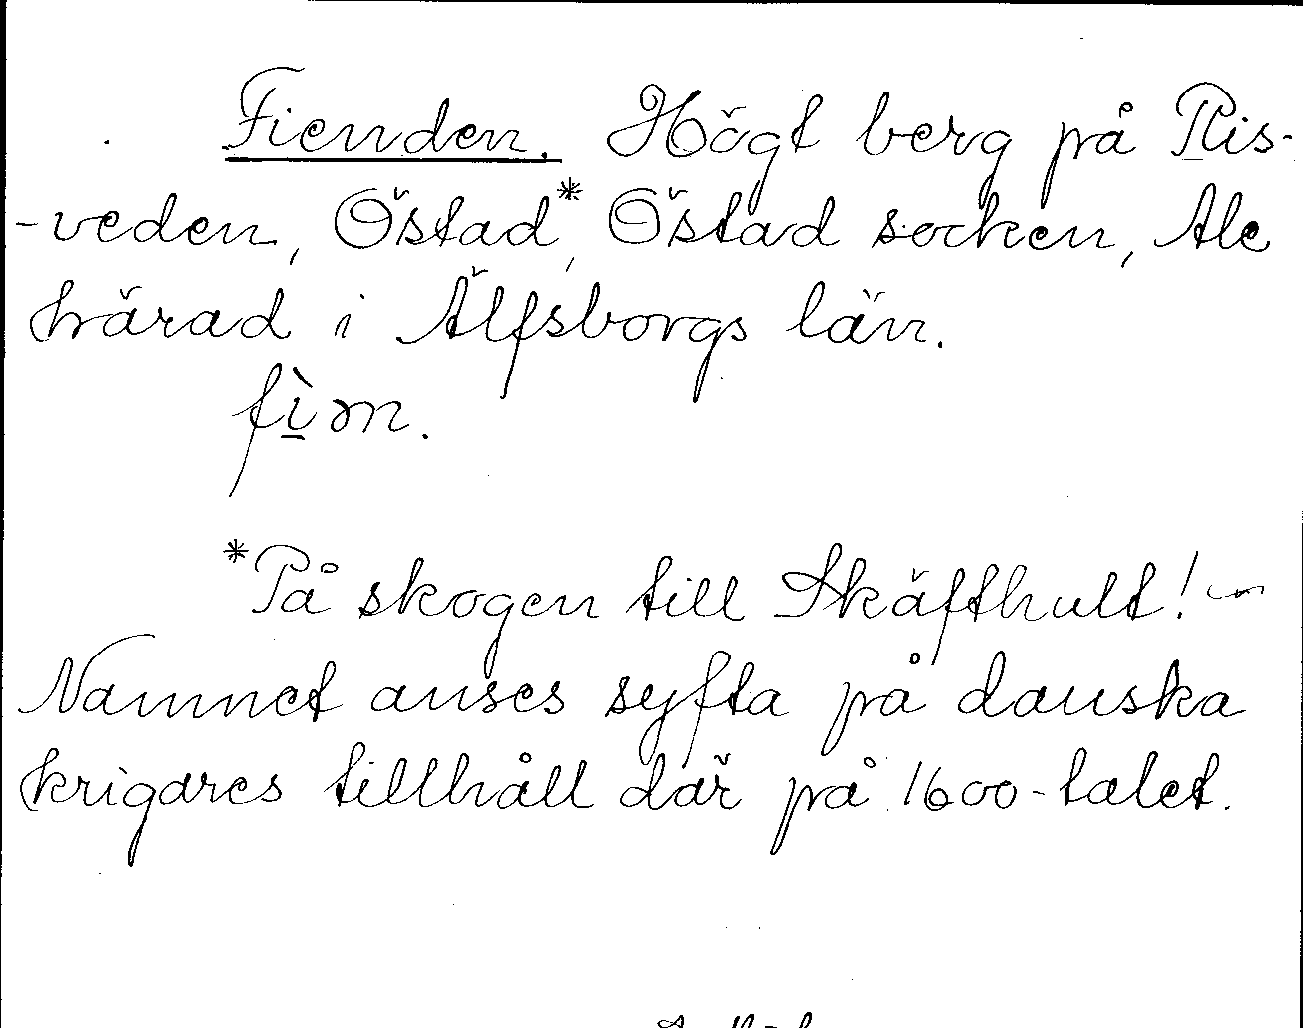 Fienden. Högt berg på Ris-
-veden, Östad*, Östad socken, Ale
härad i Älfsborgs län.
*På skogen till Skäfthult! ~
Namnet anses syfta på danska
krigares tillhåll där på 1600-talet.